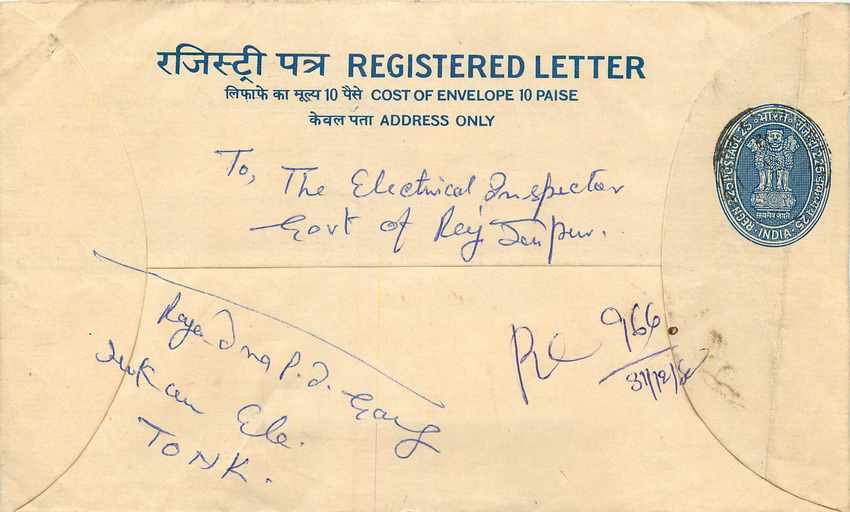 रजिस्ट्री पत्र REGISTERED LETTER
लिफ़ाफ़े का मूल्य 10 पैसे COST OF ENVELOPE 10 PAISE
केवल पता ADDRESS ONLY
REGN. 225 POSTAGE 25 भारत
INDIA
सत्यमेव जयते
To, The Electrical Inspector
Govt of Raj Jaipur.
Rajendra P. D. Garg
Ele.
TONK.
966